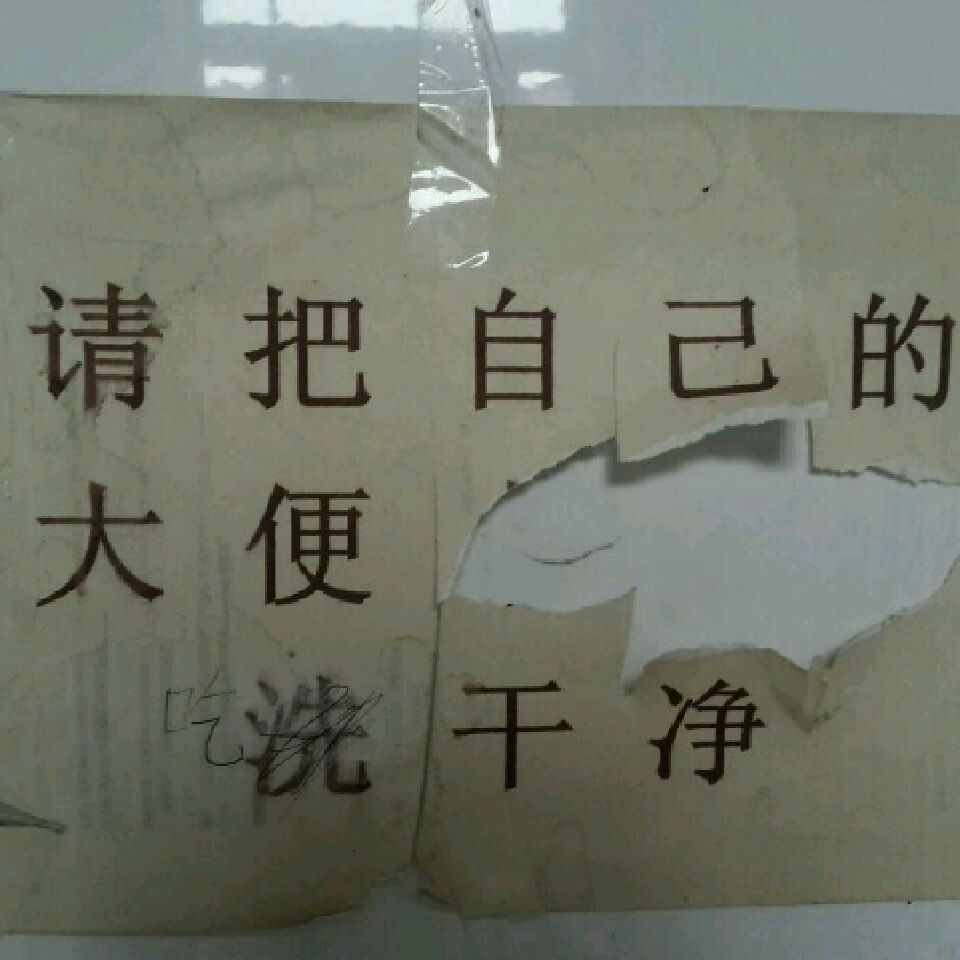 请把自己的
大便
吃洗干净